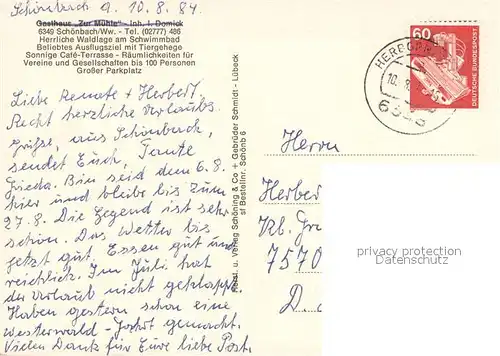 Schönbach a. 10.8.84.
Gasthaus „Zur Mühle" - Inh. I. Domick
6349 Schönbach/Ww. - Tel. (02777) 486
Herrliche Waldlage am Schwimmbad
Beliebtes Ausflugsziel mit Tiergehege
Sonnige Café-Terrasse - Räumlichkeiten für
Vereine und Gesellschaften bis 100 Personen
Großer Parkplatz
Liebe Renate + Herbert.
Recht herzliche Urlaubs.
Grüße, aus Schönbach,
sendet Euch, Tante
Frieda. Bin seid dem 6.8.
hier und bleibe bis zum
27.8. Die Gegend ist sehr
schön. Das Wetter bis
jetzt gut. Essen gut und
reichlich. Im Juli hat
der Urlaub nicht geklappt.
Haben gestern schon eine
Westerwald-Fahrt gemacht.
Vielen Dank für Eure liebe Post.
Herst. u. Verlag Schöning & Co + Gebrüder Schmidt - Lübeck
sf Bestellnr. Schönb 6
HERBORN
10.8.
60
DEUTSCHE BUNDESPOST
Herrn
Herbert
7570
privacy protection
Datenschutz